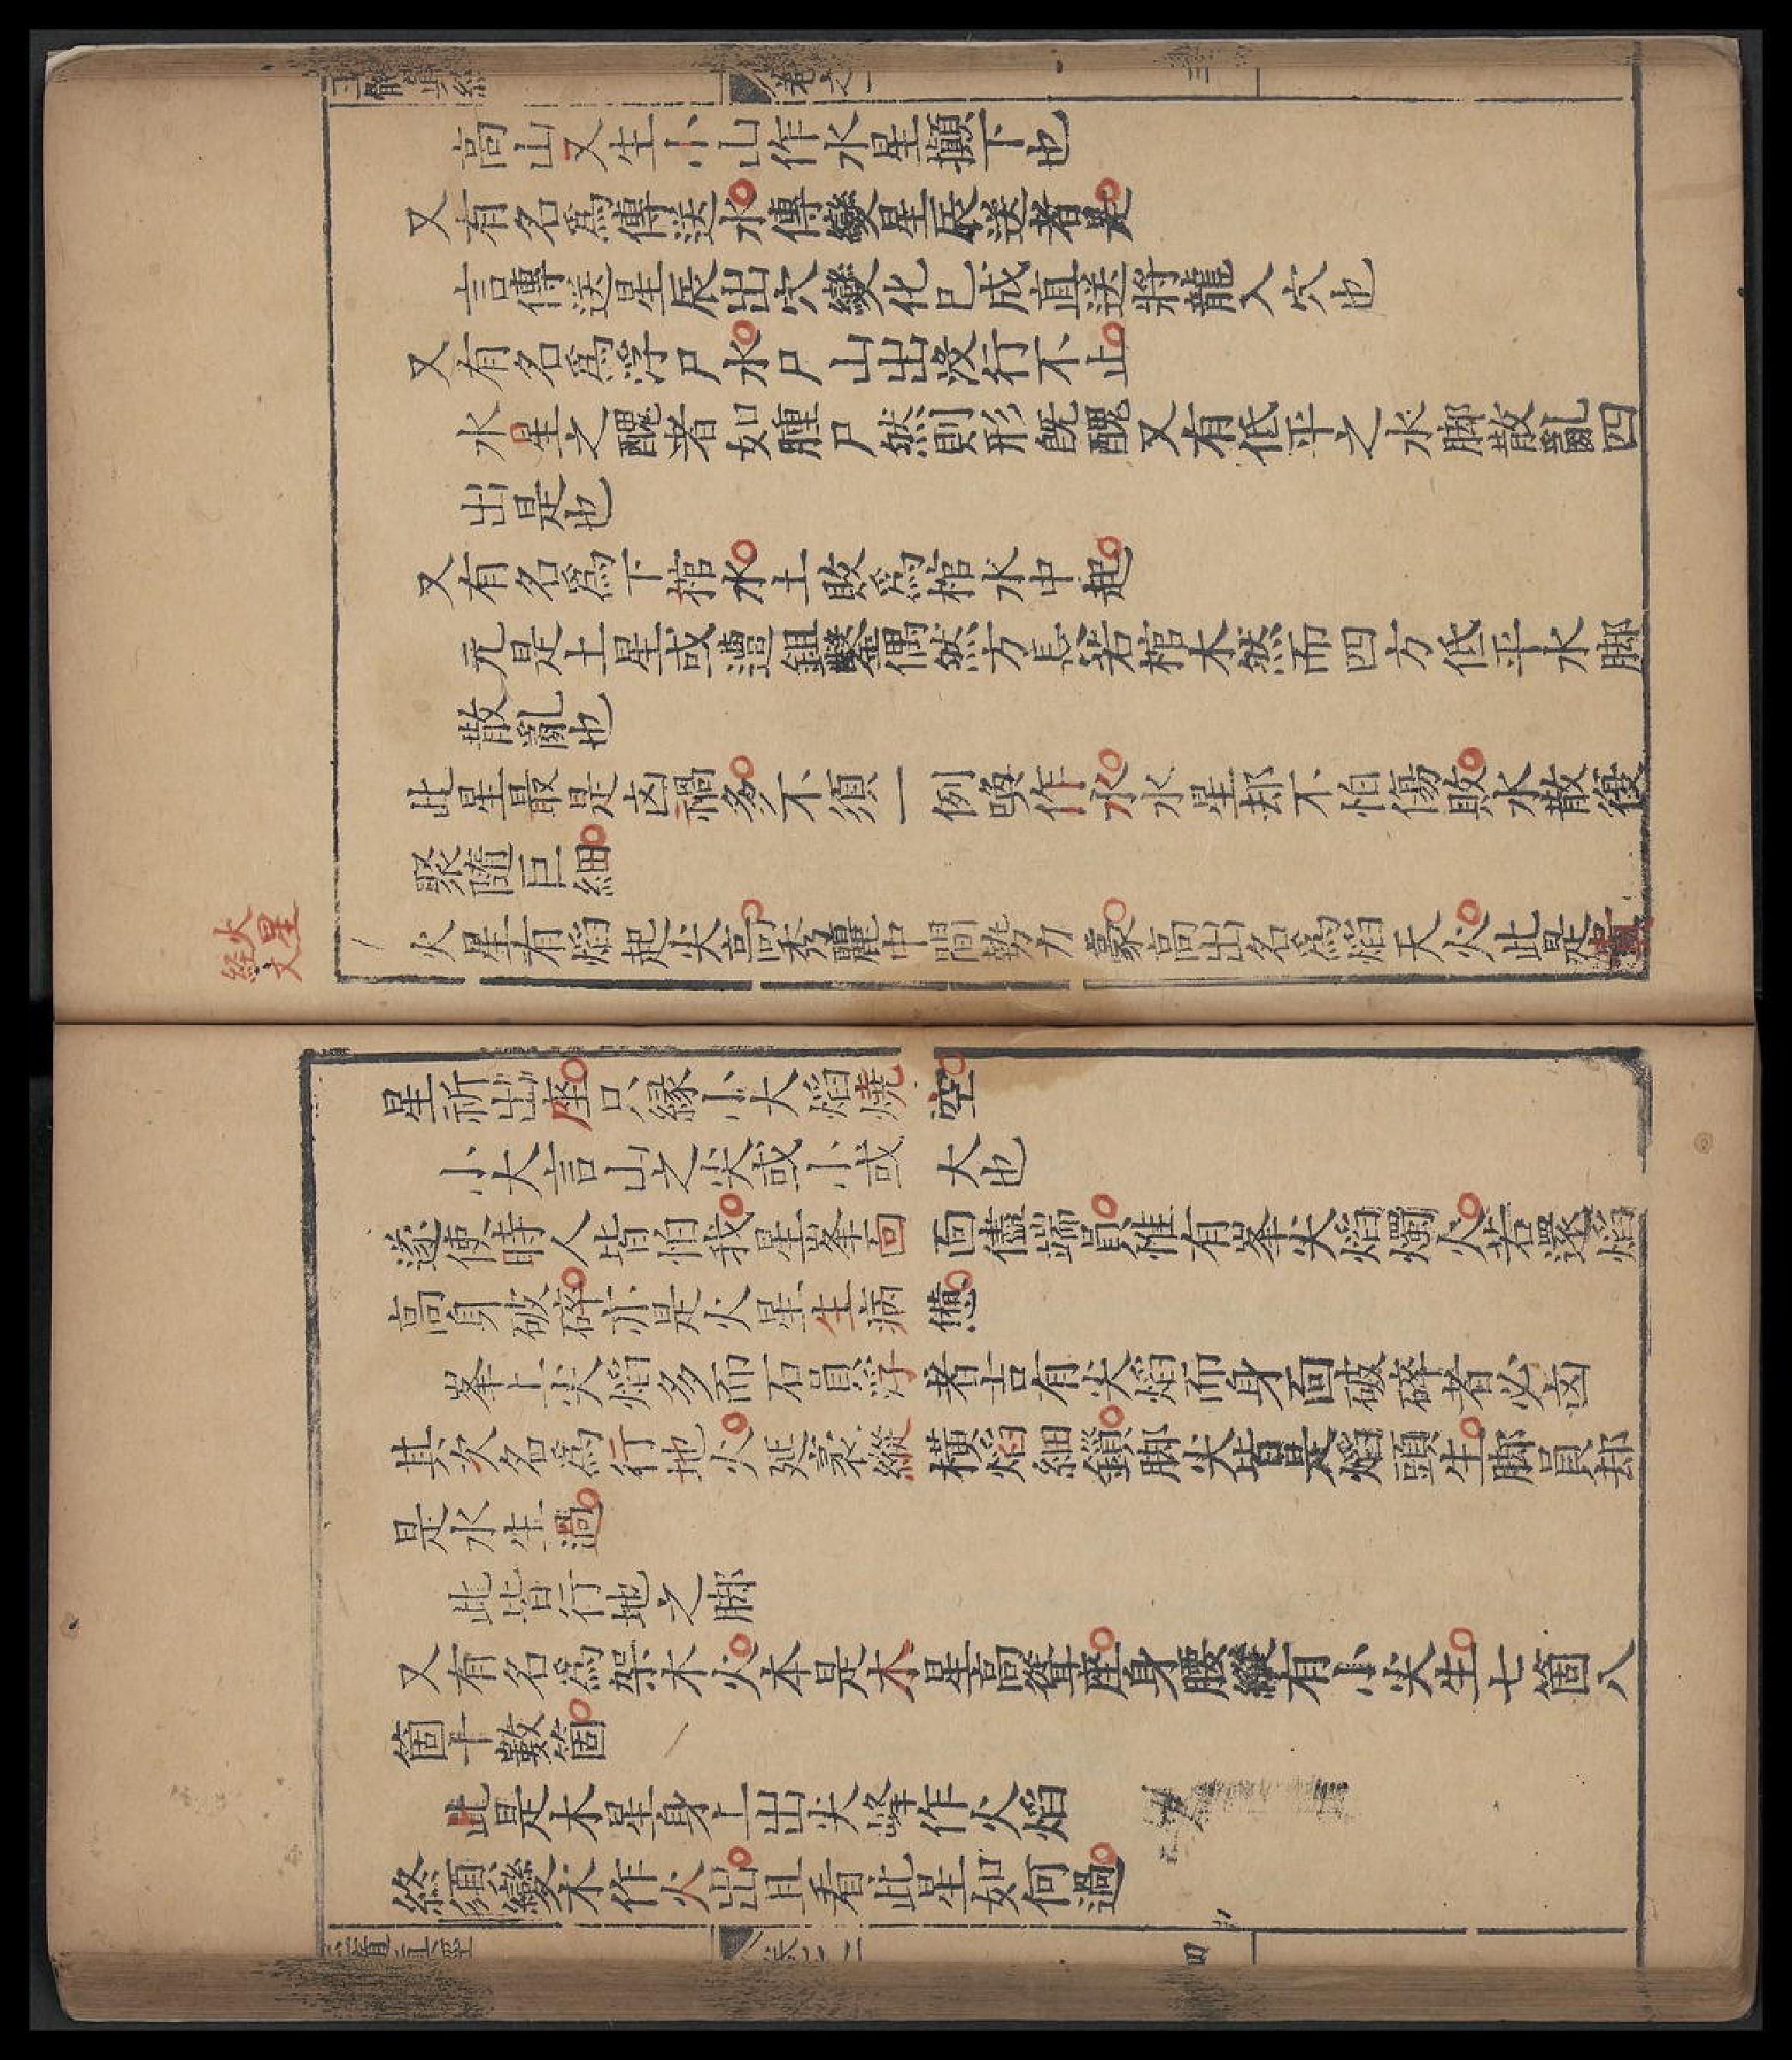 高山又生小山作水星攧下也
又有名爲傳送水傳變星辰送者是
言傳送星辰出穴變化已成直送將龍入穴也
又有名爲浮尸水尸山出沒行不止
水星之醜者如腫尸然則形旣醜又有低平之水脚散亂四
出是也
又有名爲下棺水土敗爲棺水中起
元是土星或遭鉏鑿偶然方長若棺木然而四方低平水脚
散亂也
此星最是凶禍多不須一例喚作水水星却不怕傷敗水散復
聚隨巨細
火星經文
火星有焰起尖高秀麗中間勢力豪高出名爲焰天火此是
星祈出座只緣小大焰燒空
小大言山之尖或小或大也
遂使時人皆怕我星峯回面儘端員惟有峯尖焰燭火若還焰
高身破碎亦是火星生病憊
峯上尖焰多而石員浮者吉有尖焰而身面破碎者必凶
其次名爲行地火延袤縱橫焰細鎖脚尖皆是焰頭生脚員却
是水生過
此皆行地之脚
又有名爲架木火本是木星高聳座身腰纔有小尖生七箇八
箇十數箇
此是木星身上出尖峰作火焰
終須變木作火出且看此星如何過
四